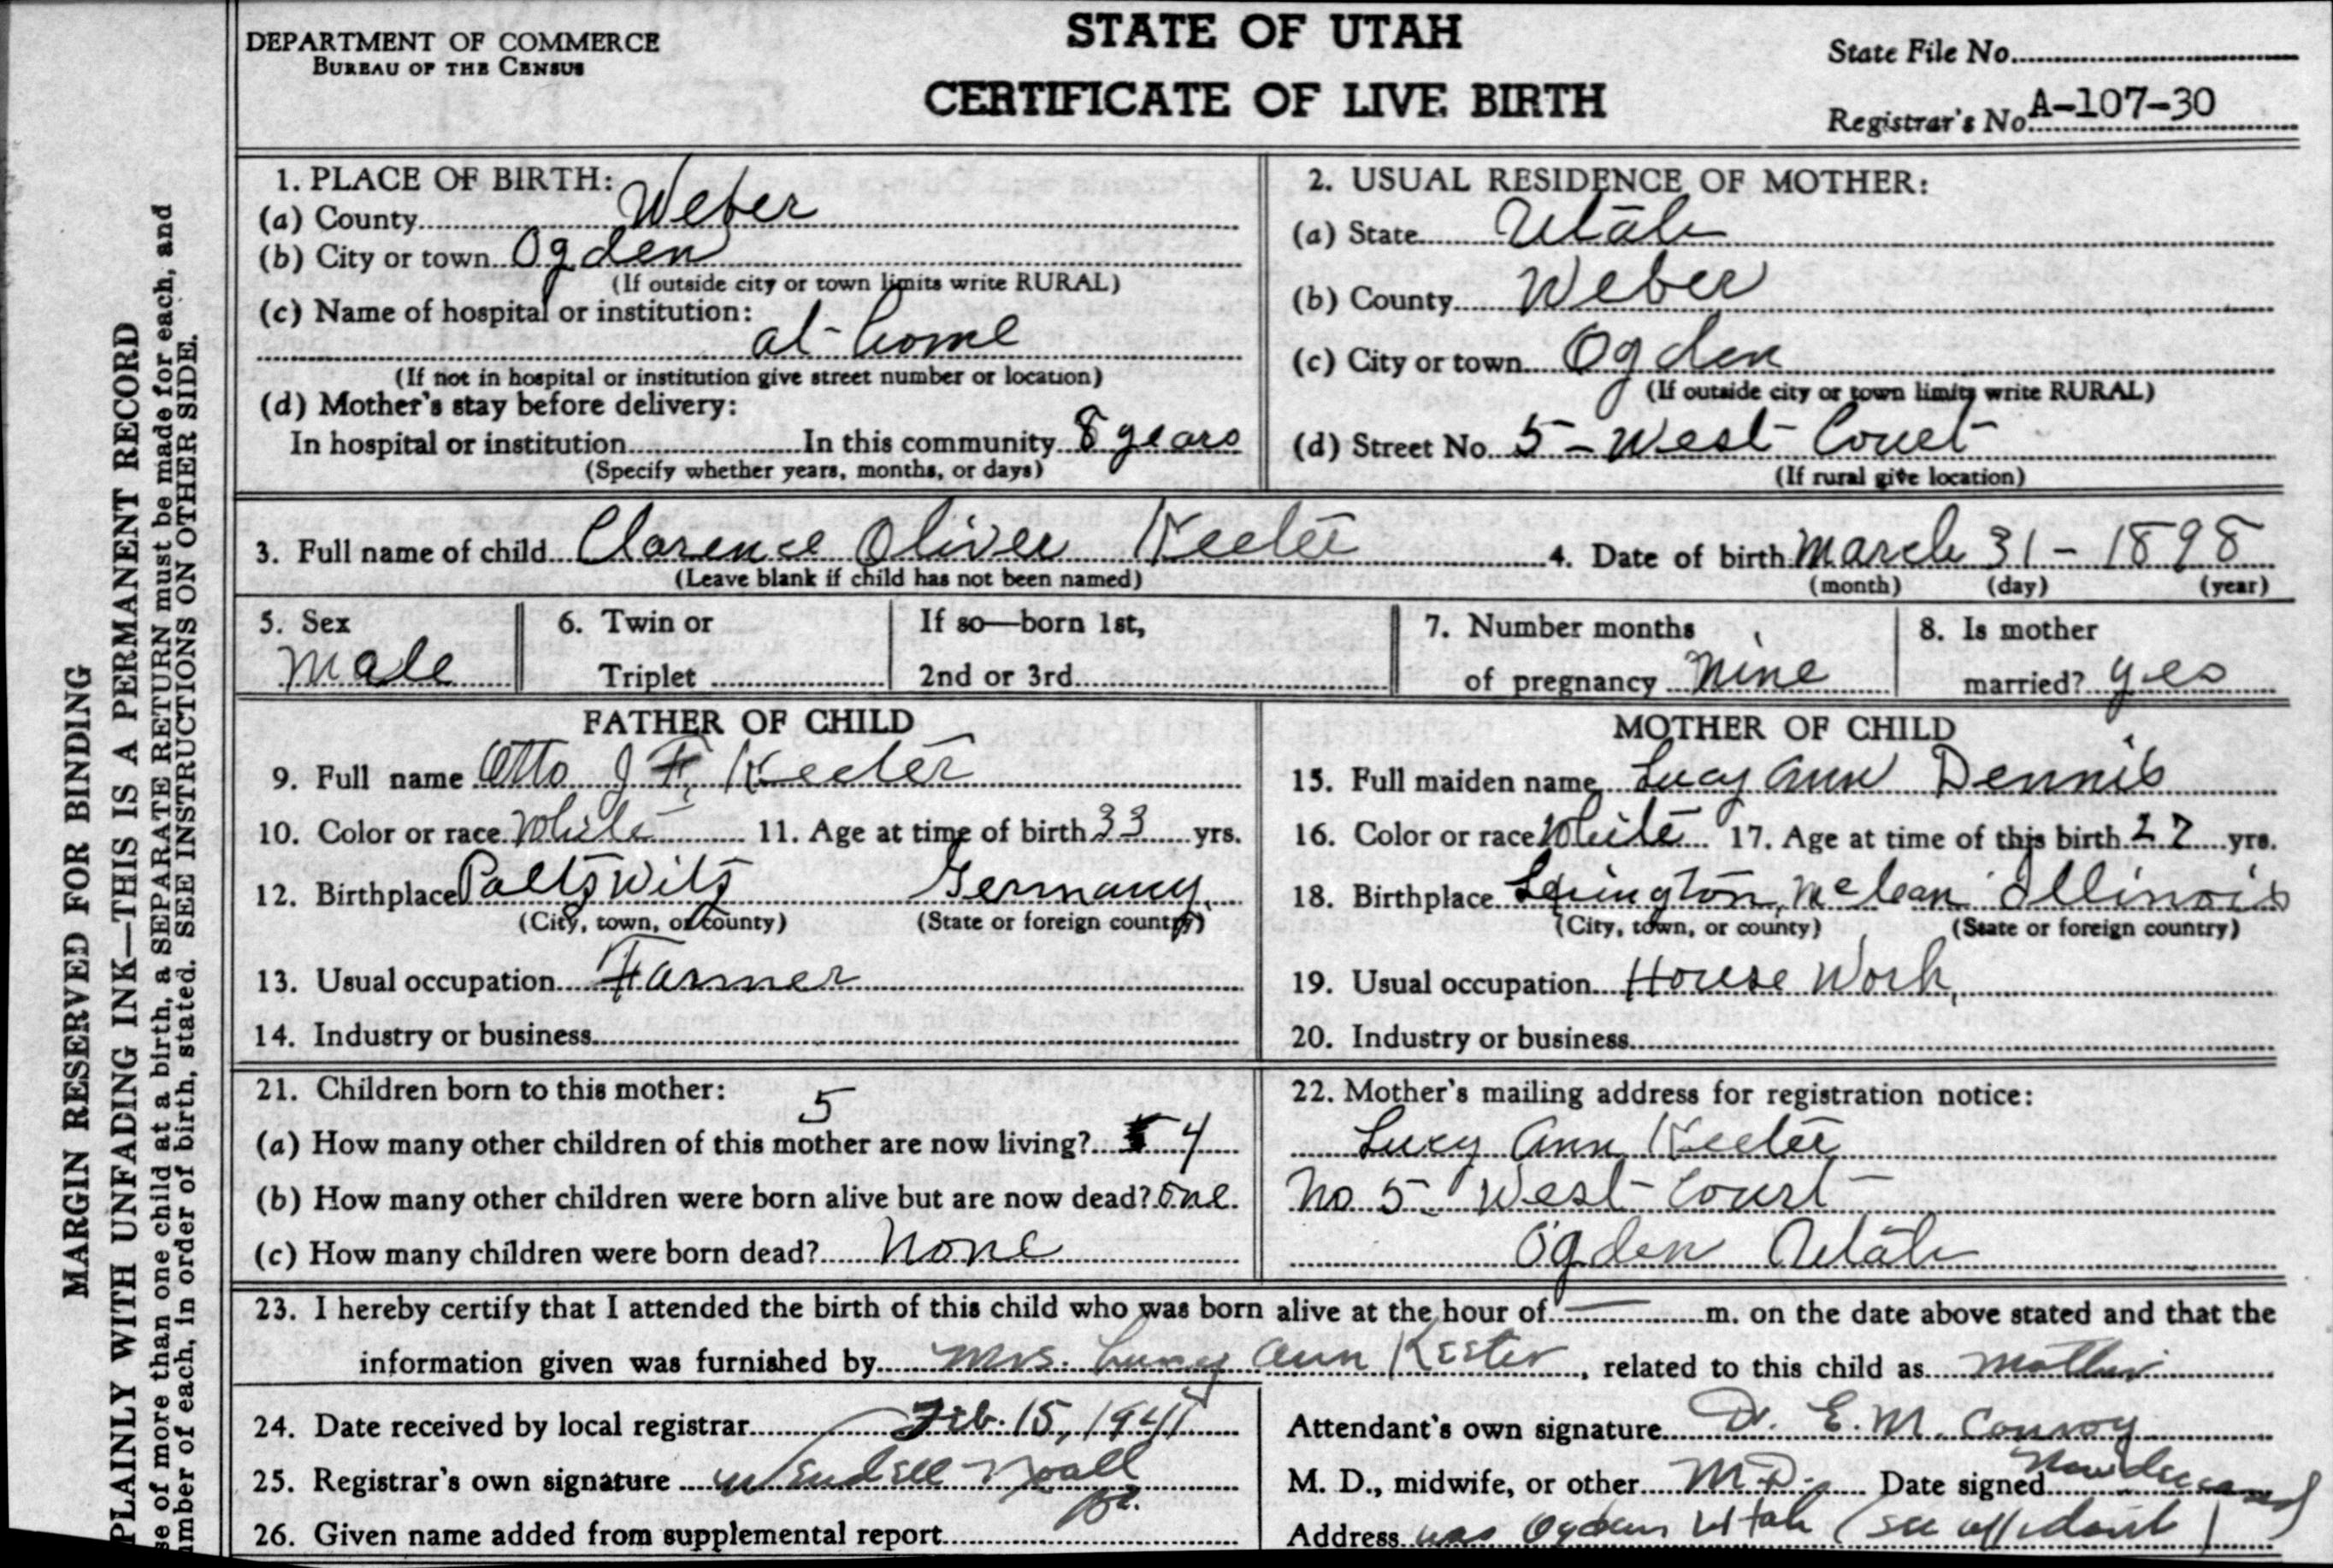 DEPARTMENT OF COMMERCE
BUREAU OF THE CENSUS
STATE OF UTAH
CERTIFICATE OF LIVE BIRTH
State File No.
Registrar's No. A-107-30
MARGIN RESERVED FOR BINDING
PLAINLY WITH UNFADING INK—THIS IS A PERMANENT RECORD
se of more than one child at a birth, a SEPARATE RETURN must be made for each, and
umber of each, in order of birth, stated. SEE INSTRUCTIONS ON OTHER SIDE.
1. PLACE OF BIRTH:
(a) County Weber
(b) City or town Ogden
(If outside city or town limits write RURAL)
(c) Name of hospital or institution:
at home
(If not in hospital or institution give street number or location)
(d) Mother's stay before delivery:
In hospital or institution In this community 8 years
(Specify whether years, months, or days)
2. USUAL RESIDENCE OF MOTHER:
(a) State Utah
(b) County Weber
(c) City or town Ogden
(If outside city or town limits write RURAL)
(d) Street No. 5 - West Court
(If rural give location)
3. Full name of child Clarence Oliver Keeter 4. Date of birth March 31 - 1898
(Leave blank if child has not been named) (month) (day) (year)
5. Sex
Male
6. Twin or
Triplet
If so—born 1st,
2nd or 3rd
7. Number months
of pregnancy Nine
8. Is mother
married? yes
FATHER OF CHILD
9. Full name Otto J F. Keeter
10. Color or race White 11. Age at time of birth 33 yrs.
12. Birthplace Germany
(City, town, or county) (State or foreign country)
13. Usual occupation Farmer
14. Industry or business
MOTHER OF CHILD
15. Full maiden name Lucy Ann Dennis
16. Color or race White 17. Age at time of this birth 27 yrs.
18. Birthplace Lexington, McLean Illinois
(City, town, or county) (State or foreign country)
19. Usual occupation House Work
20. Industry or business
21. Children born to this mother:
5
(a) How many other children of this mother are now living? 4
(b) How many other children were born alive but are now dead? one
(c) How many children were born dead? None
22. Mother's mailing address for registration notice:
Lucy Ann Keeter
No 5 West Court
Ogden Utah
23. I hereby certify that I attended the birth of this child who was born alive at the hour of — m. on the date above stated and that the
information given was furnished by Mrs. Lucy Ann Keeter, related to this child as Mother
24. Date received by local registrar Feb. 15, 1941
25. Registrar's own signature Wendell Noall
26. Given name added from supplemental report
Attendant's own signature Dr. E. M. Conroy
M. D., midwife, or other M.D. Date signed Now deceased
Address was Ogden Utah (see affidavit)